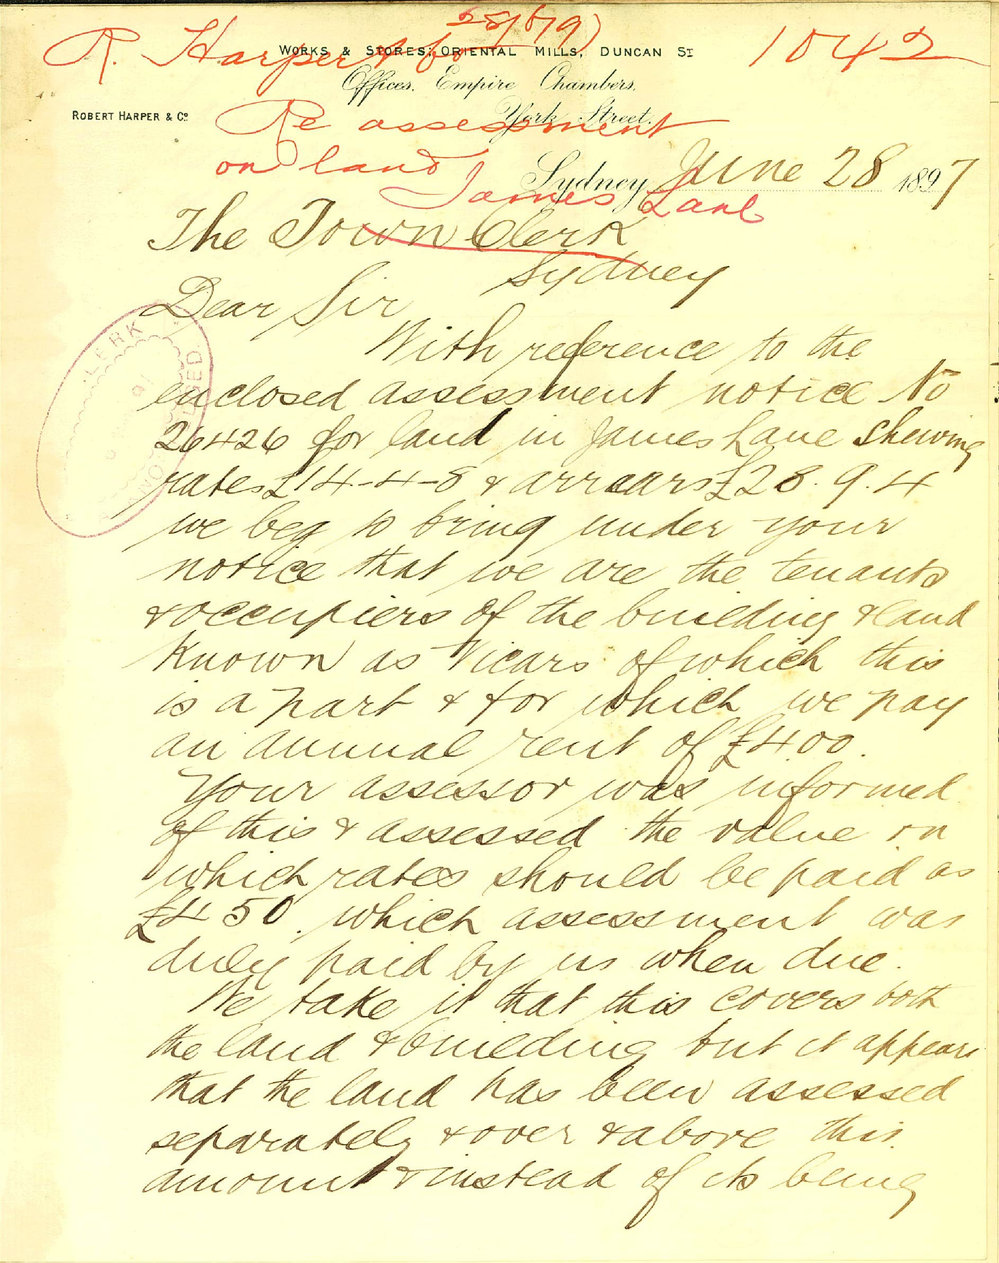 28/6/97
R. Harper & Co 1042
WORKS & STORES, ORIENTAL MILLS, DUNCAN ST
Offices, Empire Chambers,
York Street.
ROBERT HARPER & Co
Re assessment
on land
James Lane
Sydney June 28 1897
The Town Clerk
Sydney
Dear Sir
With reference to the
enclosed assessment notice No
26426 for land in James Lane shewing
rates £14-4-8 & arrears £28.9.4
we beg to bring under your
notice that we are the tenants
& occupiers of the building & land
known as Vicars of which this
is a part & for which we pay
an annual rent of £400.
Your assessor was informed
of this & assessed the value on
which rates should be paid as
£450. which assessment was
duly paid by us when due.
We take it that this covers both
the land & building but it appears
that the land has been assessed
separately & over & above this
amount & instead of its being
CLERK